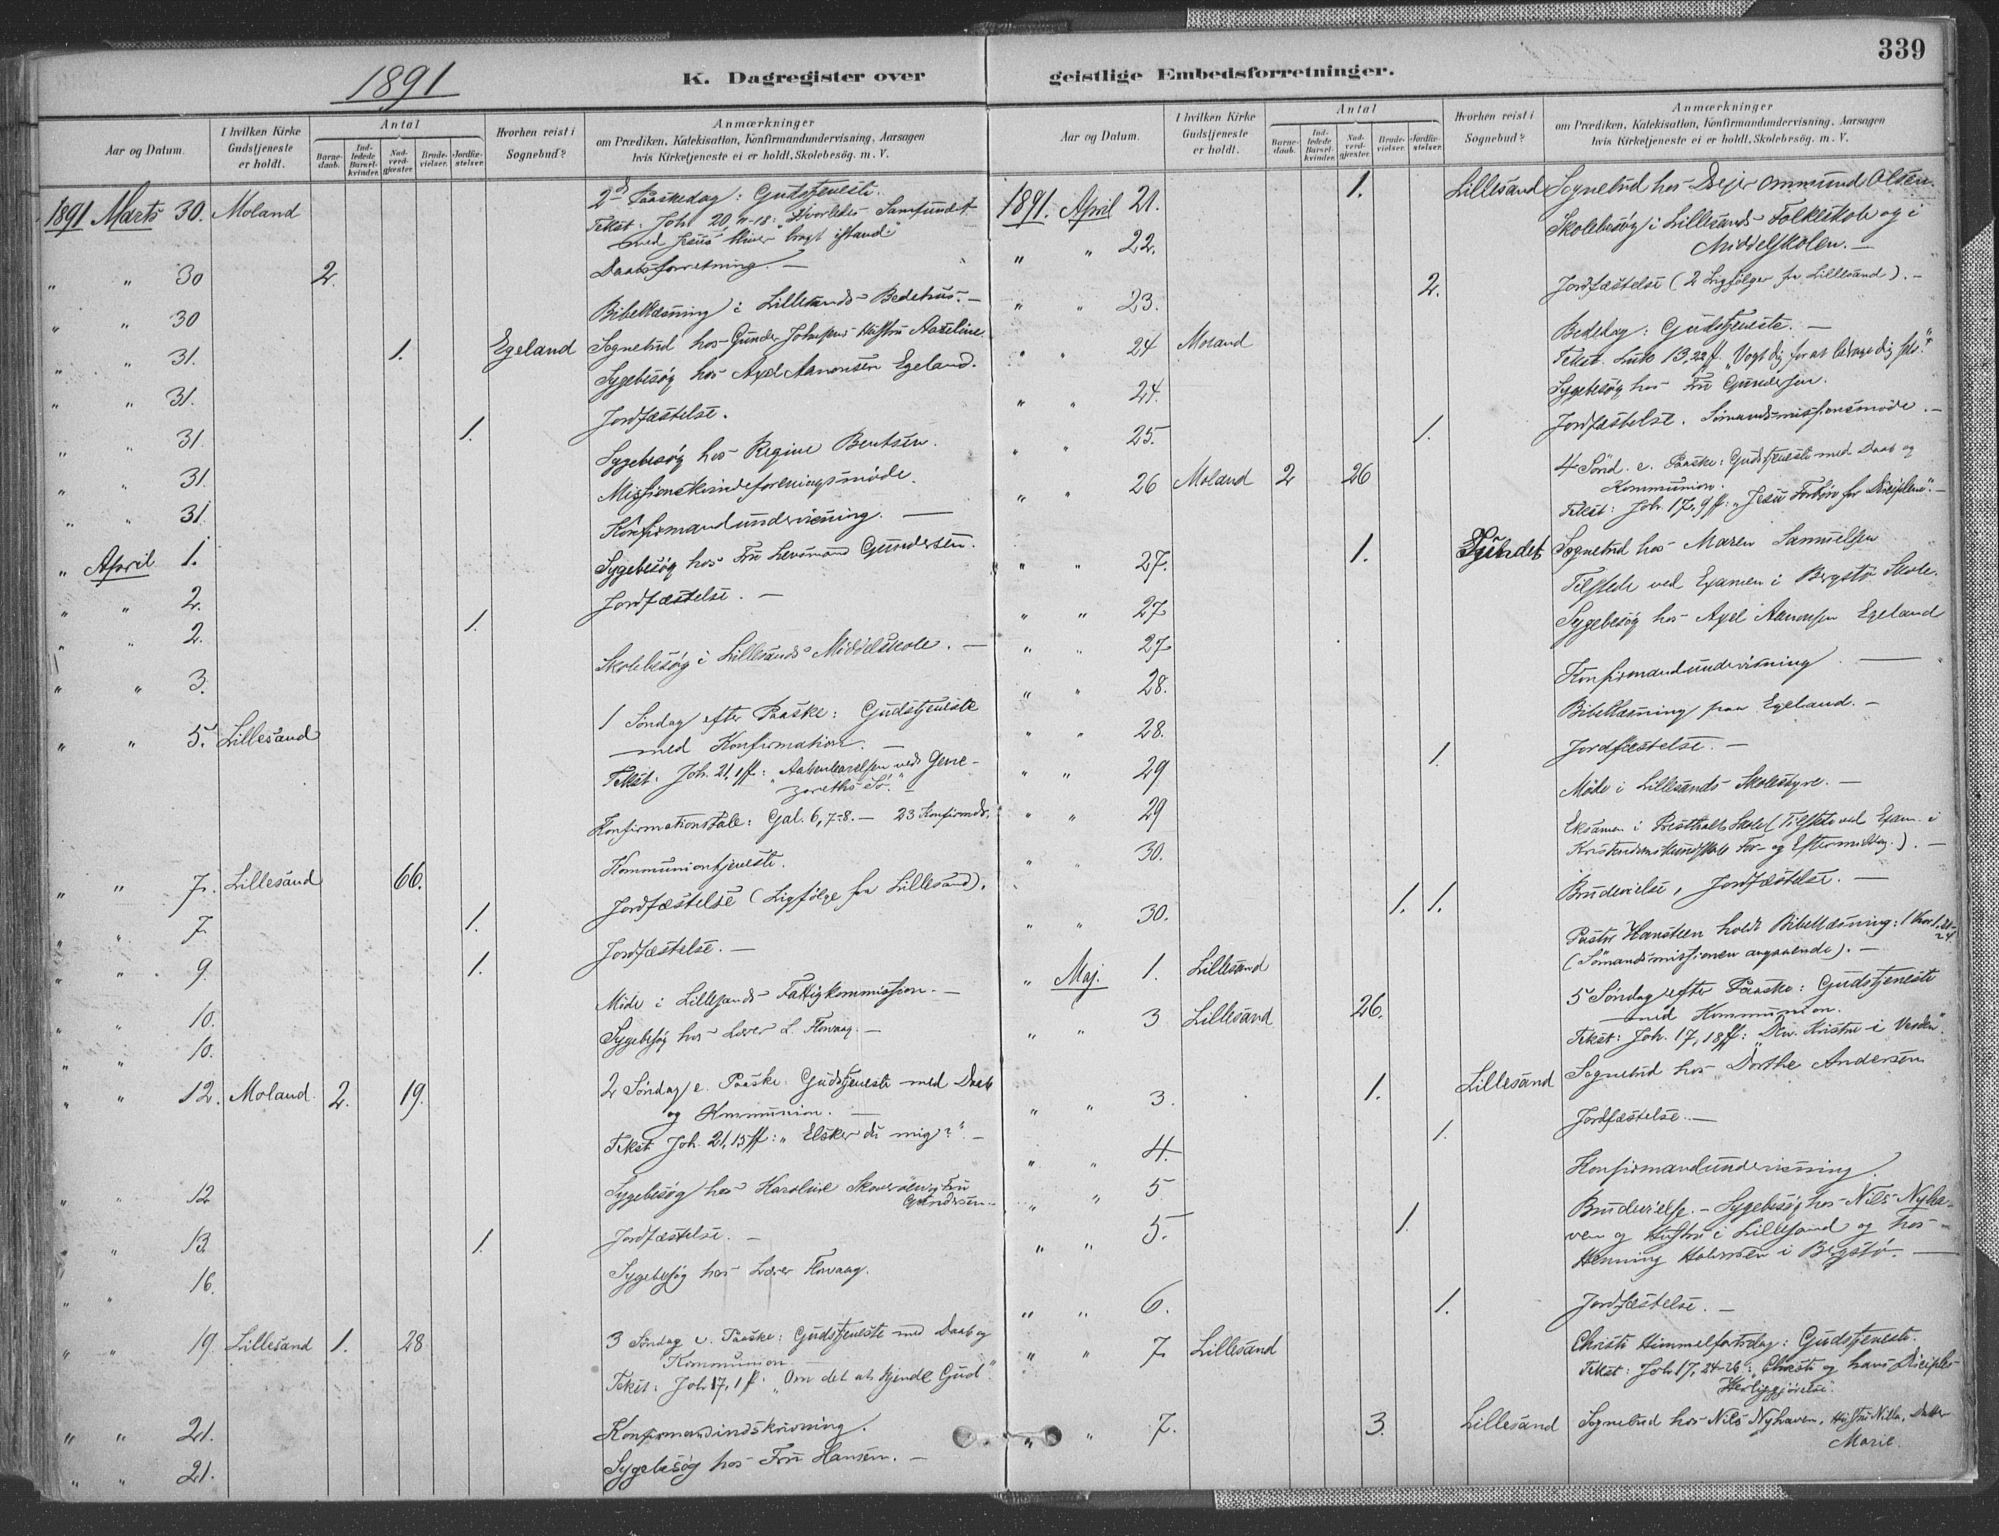 339
1891
K. Dagregister over geistlige Embedsforretninger.
Aar og Datum.
I hvilken Kirke Gudstjeneste er holdt.
Antal
Barnedaab.
Indledede Barselkvinder.
Nadverdgjester.
Brudevielser.
Jordfæstelser.
Hvorhen reist i Sognebud?
Anmærkninger
om Prædiken, Katekisation, Konfirmandundervisning, Aarsagen
hvis Kirketjeneste ei er holdt, Skolebesøg, m. V.
1891 Marts 30. Moland 2den Paaskedag: Gudstjeneste.
Tekst: Joh. 20, 11-18: Hvorledes Samfundet
med Jesus bliver bragt istand"
" " 30 2. Daabsforretning. —
" " 30 Bibellæsning i Lillesands Bedehus. —
" " 31. 1. Egeland Sognebud hos Gunder Johnsens Hustru Aaseline
" " 31. Sygebesøg hos Axel Aanonsen Egeland.
" " 31 1. Jordfæstelse.
" " 31. Sygebesøg hos Regine Bentsen.
" " 31 Missionskvindeforeningsmøde.
Konfirmandundervisning. —
" April 1. Sygebesøg hos Fru Gundersen.
" " 2. Jordfæstelse. —
" " 2. 1.
" " 3. Skolebesøg i Lillesands Middelskole. —
" " 5. Lillesand 1 Søndag efter Paaske: Gudstjeneste
med Konfirmation. —
Tekst: Joh. 21, 1 ff: "Aabenbarelsen ved Gene-
zareths Sø." —
Konfirmationstale: Gal. 6, 7-8. — 23 Konfirmds.
" " 7. Lillesand 66. Kommuniontjeneste.
" " 7. 1. Jordfæstelse (Ligfølge fra Lillesand).
" " 9. 1. Jordfæstelse. —
" " 10. Møde i Lillesands Fattigkommission. —
" " 10. Sygebesøg hos Lærer L. Flovaag. —
" " 12. Moland. 2. 19. 2 Søndag e. Paaske: Gudstjeneste med Daab
og Kommunion. —
Tekst Joh. 21, 15 ff: "Elsker du mig?" —
" " 12 Sygebesøg hos Karoline og Fru
Andersen. —
" " 13. 1. Jordfæstelse. —
" " 16. Sygebesøg hos Lærer Flovaag.
" " 19. Lillesand 1. 28 3 Søndag e. Paaske: Gudstjeneste med Daab og
Kommunion. —
Tekst: Joh 17, 1 ff: "Om det at kjende Gud".
" " 21. Konfirmandindskrivning.
" " 21. Sygebesøg hos Fru Hansen. —
Aar og Datum.
I hvilken Kirke Gudstjeneste er holdt.
Antal
Barnedaab.
Indledede Barselkvinder.
Nadverdgjester.
Brudevielser.
Jordfæstelser.
Hvorhen reist i Sognebud?
Anmærkninger
om Prædiken, Katekisation, Konfirmandundervisning, Aarsagen
hvis Kirketjeneste ei er holdt, Skolebesøg, m. V.
1891. April 21. 1. Lillesand Sognebud hos Ommund Olsen.
" " 22. Skolebesøg i Lillesands Folkeskole og i
Middelskolen. —
" " 23. 2. Jordfæstelse (2 Ligfølger fra Lillesand). —
" " 24 Moland Bededag: Gudstjeneste. —
Tekst: Luk 13, 22 ff. "Vogt dig for at bedrage dig selv."
" " 24. Sygebesøg hos Fru Gundersen.
" " 25. 1. Jordfæstelse. Sømandsmissionsmøde. —
" " 26 Moland 2 26 4 Sønd. e. Paaske: Gudstjeneste med Daab og
Kommunion.
Tekst: Joh. 17, 9 ff: "Jesu Forbøn for Disciplene". —
" " 27. 1. Sognebud hos Maren Samuelsen
" " 27 Tilstede ved Examen i Bergstø Skole.
" " 27 Sygebesøg hos Axel Aanonsen Egeland
" " 28. Konfirmandundervisning. —
" " 28. Bibellæsning paa Egeland. —
" " 29 1. Jordfæstelse. —
" " 29 Møde i Lillesands Skolestyre. —
" " 30. Eksamen i Skole (Tilstede ved Exam. i
Kristendomskundskab For- og Eftermiddag). —
" " 30. 1. 1. Brudevielse, Jordfæstelse. —
" Maj. 1. Lillesand Pastor Hansteen holdt Bibellæsning: 1 Kor 1, 21-
24.
(Sømandsmissionen angaaende). —
" " 3 Lillesand 26. 5 Søndag efter Paaske: Gudstjeneste
med Kommunion.
Tekst: Joh. 17, 18 ff: i Verden".
" " 3. 1. Lillesand Sognebud hos Dorthe Andersen
" " 4. 1. Jordfæstelse. —
" " 5 Konfirmandundervisning.
" " 5. 1. Brudevielse. — Sygebesøg hos Nils Nyha-
ven og Hustru i Lillesand og hos
Henning i Bergstø. —
" " 6. 1. Jordfæstelse. —
" " 7. Lillesand Christi Himmelfartsdag: Gudstjeneste.
Tekst: Joh 17, 24-26: "Christi og hans Disciples
Herliggjørelse".
" " 7. 3. Lillesand Sognebud hos Nils Nyhaven, Hustru Nilla, Datter
Marie.